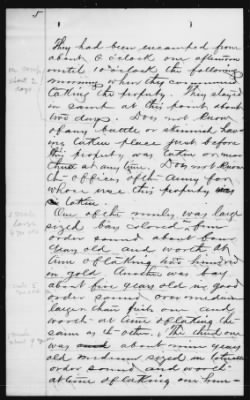 5
They had been encamped from
about 6 o'clock one afternoon
until 10 o'clock the following
morning when they commenced
taking the property. They stayed
in camp at this point about
two days. Does not know
of any battle or skirmish hav-
ing taken place just before
this property was taken or near
there at any time. Does not know
the officers of the Army for
whose use this property was
taken.
One of the mules was large
sized bay colored, four
year old and worth at
time of taking two hundred
in gold. Another was bay
about five years old in good
order sound over medium
larger than first one and
worth at time of taking the
same as the other. The third one
was about nine years
old medium sized in
order sound and worth
at time of taking one hun-